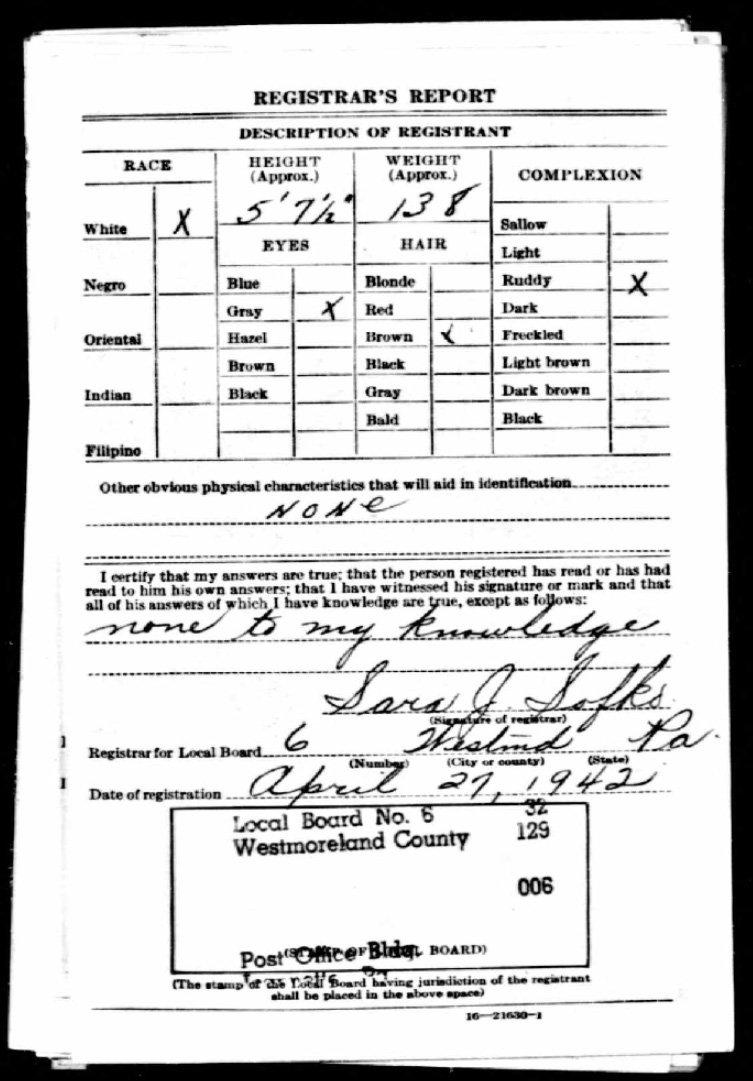 REGISTRAR'S REPORT
DESCRIPTION OF REGISTRANT
RACE
HEIGHT
(Approx.)
WEIGHT
(Approx.)
COMPLEXION
5' 7½"
138
White X
Sallow
EYES
HAIR
Light
Negro
Blue
Blonde
Ruddy X
Gray X
Red
Dark
Oriental
Hazel
Brown X
Freckled
Brown
Black
Light brown
Indian
Black
Gray
Dark brown
Bald
Black
Filipino
Other obvious physical characteristics that will aid in identification
NONE
I certify that my answers are true; that the person registered has read or has had
read to him his own answers; that I have witnessed his signature or mark and that
all of his answers of which I have knowledge are true, except as follows:
none to my knowledge
Sara J. Sofks
(Signature of registrar)
Registrar for Local Board 6 Westmd Pa.
(Number) (City or county) (State)
Date of registration April 27, 1942
Local Board No. 6 32
Westmoreland County 129
006
Post Office Bldg.
(STAMP OF LOCAL BOARD)
(The stamp of the Local Board having jurisdiction of the registrant
shall be placed in the above space)
16—21630-1